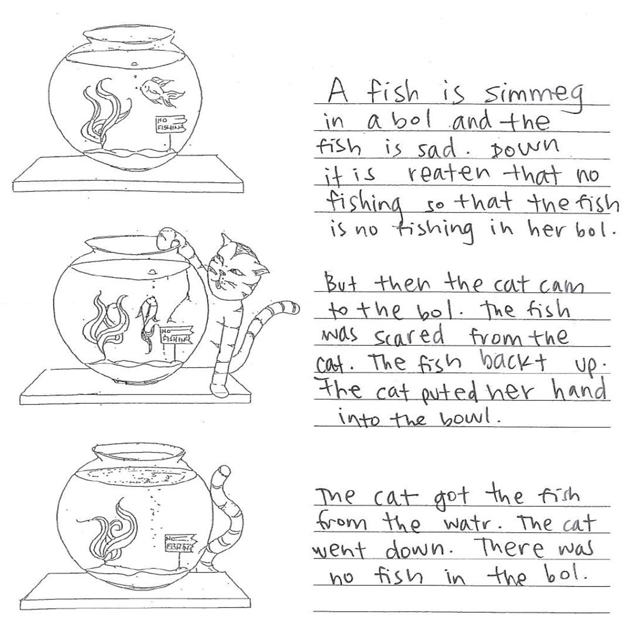 NO FISHING
A fish is simmeg
in a bol and the
fish is sad. DOWN
it is reaten that no
fishing so that the fish
is no fishing in her bol.
NO FISHING
But then the cat cam
to the bol. The fish
was scared from the
cat. The fish backt up.
The cat puted her hand
into the bowl.
NO FISHING
The cat got the fish
from the watr. The cat
went down. There was
no fish in the bol.